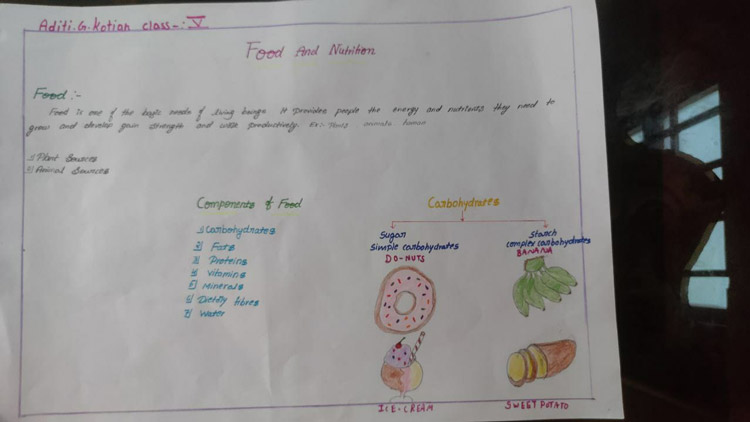 Aditi.G.Kotian class-: V
Food And Nutrition
Food :-
Food is one of the basic needs of living beings. It provides people the energy and nutrients they need to
grow and develop gain strength and work productively. Ex:- animals
1) Plant Sources
2) Animal Sources
Components of Food
1) Carbohydrates
2) Fats
3) Proteins
4) Vitamins
5) Minerals
6) Dietry fibres
7) Water
Carbohydrates
Sugar
Simple carbohydrates
DO-NUTS
ICE-CREAM
Starch
complex carbohydrates
BANANA
SWEET POTATO